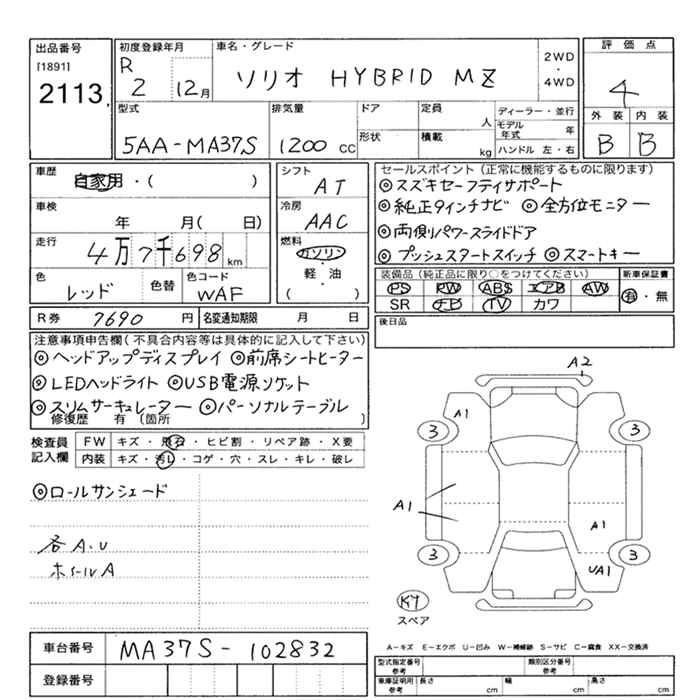 出品番号
[1891]
2113
初度登録年月
R 2 12月
車名・グレード
ソリオ HYBRID MZ
2WD
・
4WD
評価点
4
外装 内装
B B
型式
5AA-MA37S
排気量
1200 cc
ドア
形状
定員
人
積載
kg
ディーラー・並行
モデル年式 年
ハンドル 左・右
車歴
自家用・( )
車検
年 月( 日)
走行
4万7千698km
色
レッド
色替
色コード
WAF
シフト
AT
冷房
AAC
燃料
ガソリン・
軽・油
( )
R券 7690 円
名変通知期限 月 日
セールスポイント(正常に機能するものに限ります)
◎スズキセーフティサポート
◎純正9インチナビ ◎全方位モニター
◎両側パワースライドドア
◎プッシュスタートスイッチ ◎スマートキー
装備品(純正品に限り○をつけてください)
PS PW ABS エアB AW
SR ナビ TV カワ
新車保証書
有・無
後日品
注意事項申告欄(不具合内容等は具体的に記入して下さい)
◎ヘッドアップディスプレイ ◎前席シートヒーター
◎LEDヘッドライト ◎USB電源ソケット
◎スリムサーキュレーター ◎パーソナルテーブル
修復歴 有(箇所 )
検査員記入欄
FW キズ・飛石・ヒビ割・リペア跡・X要
内装 キズ・汚レ・コゲ・穴・スレ・キレ・破レ
◎ロールサンシェード
各A.U
ホイールA
A2
A1
3 3
A1
A1
3 3
UA1
Kワ
スペア
A-キズ E-エクボ U-凹み W-補修跡 S-サビ C-腐食 XX-交換済
車台番号 MA37S-102832
登録番号
型式指定番号
参考
類別区分番号
参考
車庫証明用
参考
長さ cm 幅 cm 高さ cm